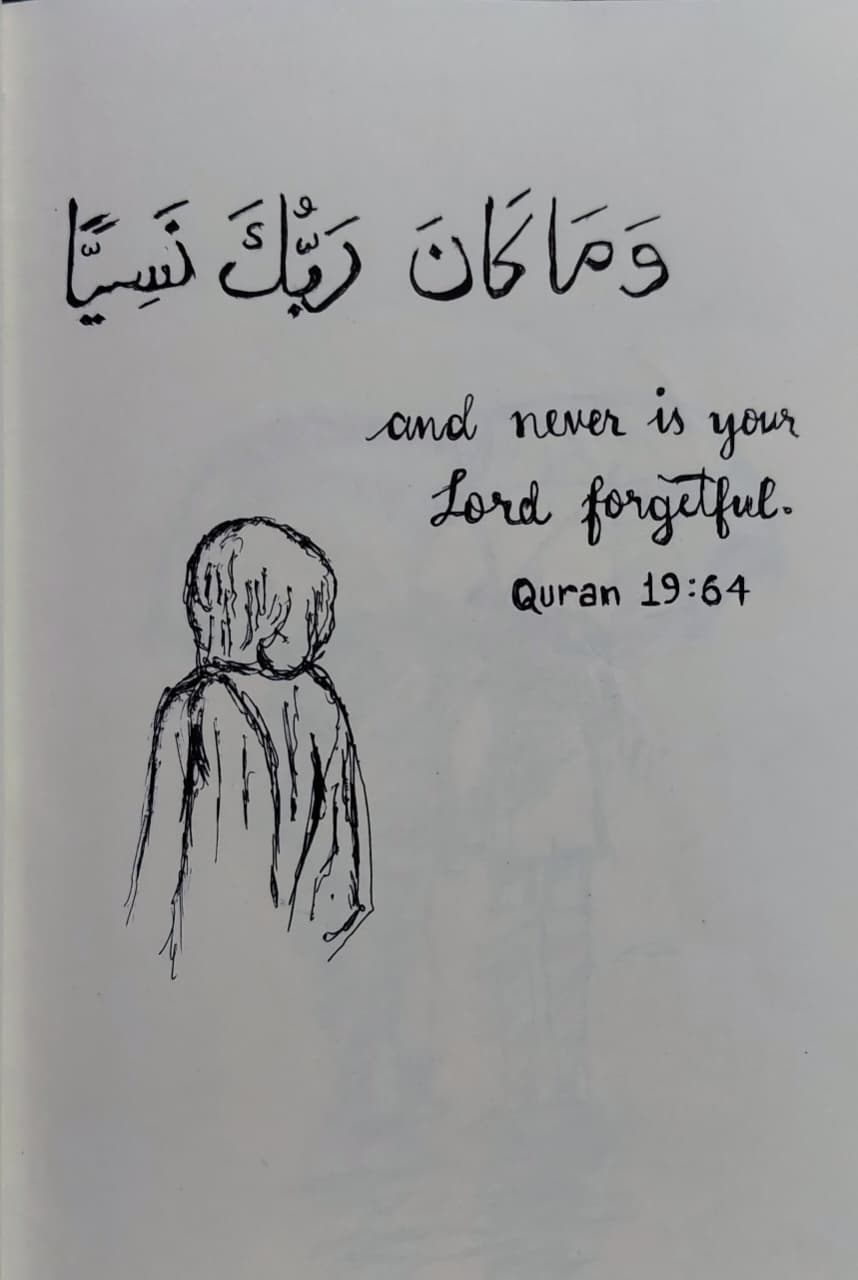 وَمَا كَانَ رَبُّكَ نَسِيًّا
and never is your
Lord forgetful.
Quran 19:64